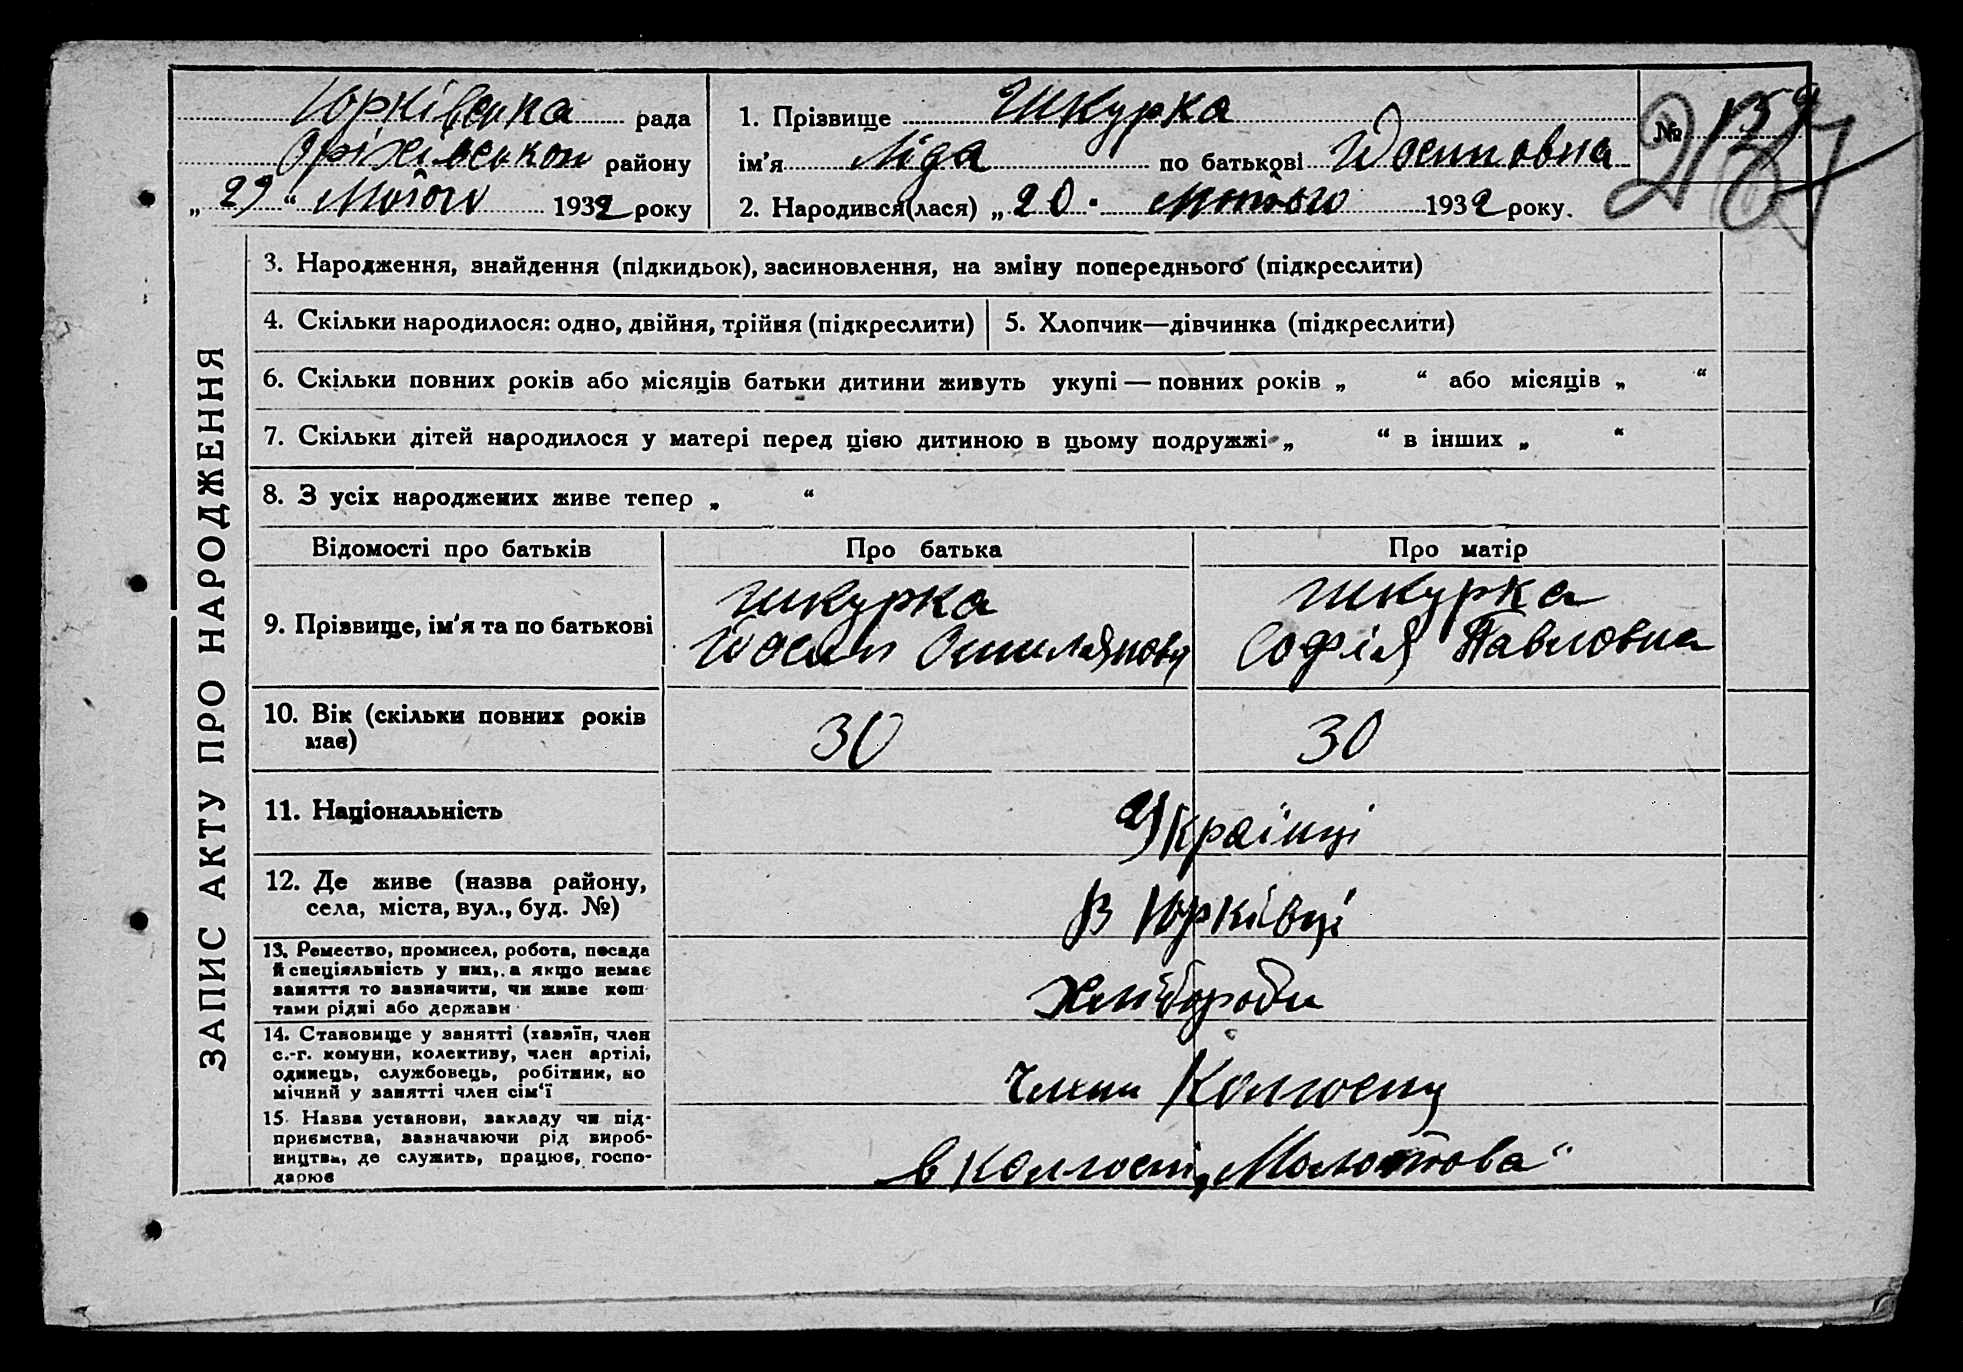 Юрківська рада
Оріхівського району
„29“ Лютого 1932 року
1. Прізвище Шкурка
ім’я Ліда по батькові Йосиповна
2. Народився(лася) „20. Лютого 1932 року.
№ 159
267
ЗАПИС АКТУ ПРО НАРОДЖЕННЯ
3. Народження, знайдення (підкидьок), засиновлення, на зміну попереднього (підкреслити)
4. Скільки народилося: одно, двійня, трійня (підкреслити)
5. Хлопчик—дівчинка (підкреслити)
6. Скільки повних років або місяців батьки дитини живуть укупі — повних років „ “ або місяців „ “
7. Скільки дітей народилося у матері перед цією дитиною в цьому подружжі „ “ в інших „ “
8. З усіх народжених живе тепер „ “
Відомості про батьків
Про батька
Про матір
9. Прізвище, ім’я та по батькові
Шкурка
Йосип
Шкурка
Софія Павловна
10. Вік (скільки повних років
має)
30
30
11. Національність
Українці
12. Де живе (назва району,
села, міста, вул., буд. №)
В Юрківці
13. Ремество, промисел, робота, посада
й спеціяльність у них, а якщо немає
заняття то зазначити, чи живе кош
тами рідні або держави
Хлібороби
14. Становище у занятті (хазяїн, член
с.-г. комуни, колективу, член артілі,
одинець, службовець, робітник, по
мічний у занятті член сім’ї
Члени Колгоспу
15. Назва установи, закладу чи під-
приємства, зазначаючи рід вироб-
ництва, де служить, працює, госпо-
дарює
в колгоспі „Молотова“